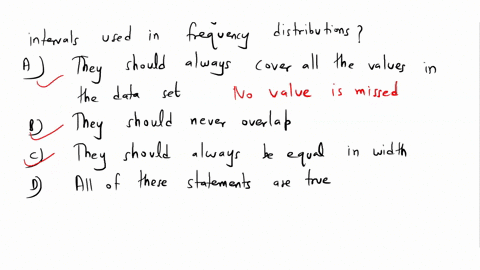 intervals used in frequency distributions?
A) They should always cover all the values in
the data set No value is missed
B) They should never overlap
C) They should always be equal in width
D) All of these statements are true